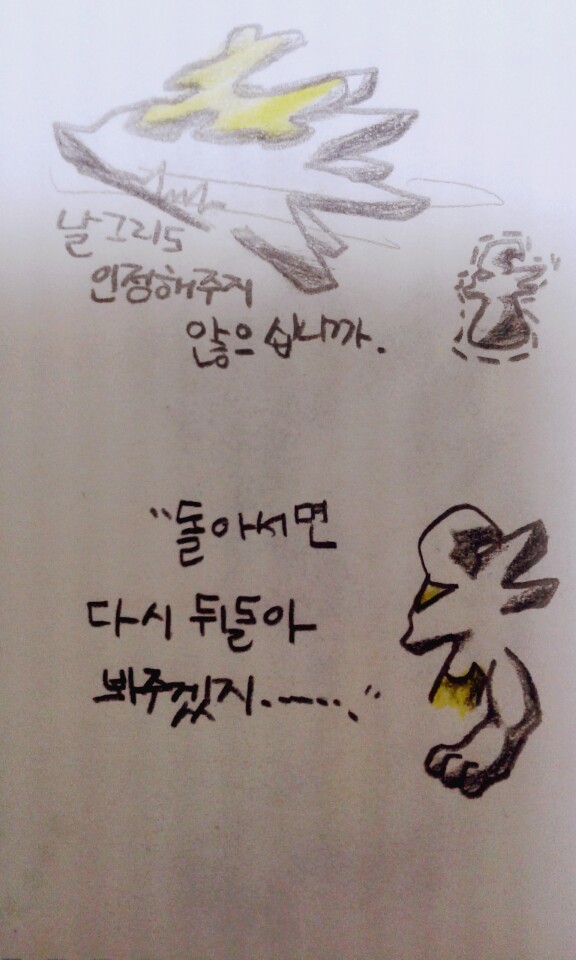 날 그리도
인정해주지
않으십니까.
"돌아서면
다시 뒤돌아
봐주겠지.……"